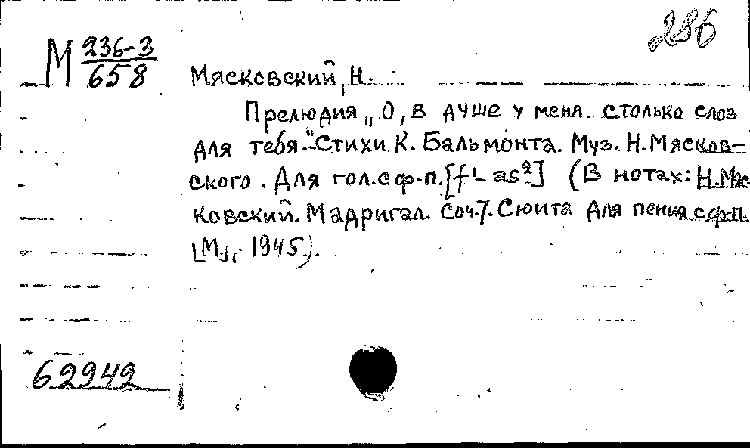 286
М 236-3
658
Мясковский, Н.
Прелюдия „О, в душе у меня столько слов
для тебя". Стихи К. Бальмонта. Муз. Н. Мясков-
ского. Для гол. с ф-п. [f¹-as²] (В нотах: Н. Мяс
ковский. Мадригал. Соч. 7. Сюита для пения с ф-п.
[М], 1945).
62942